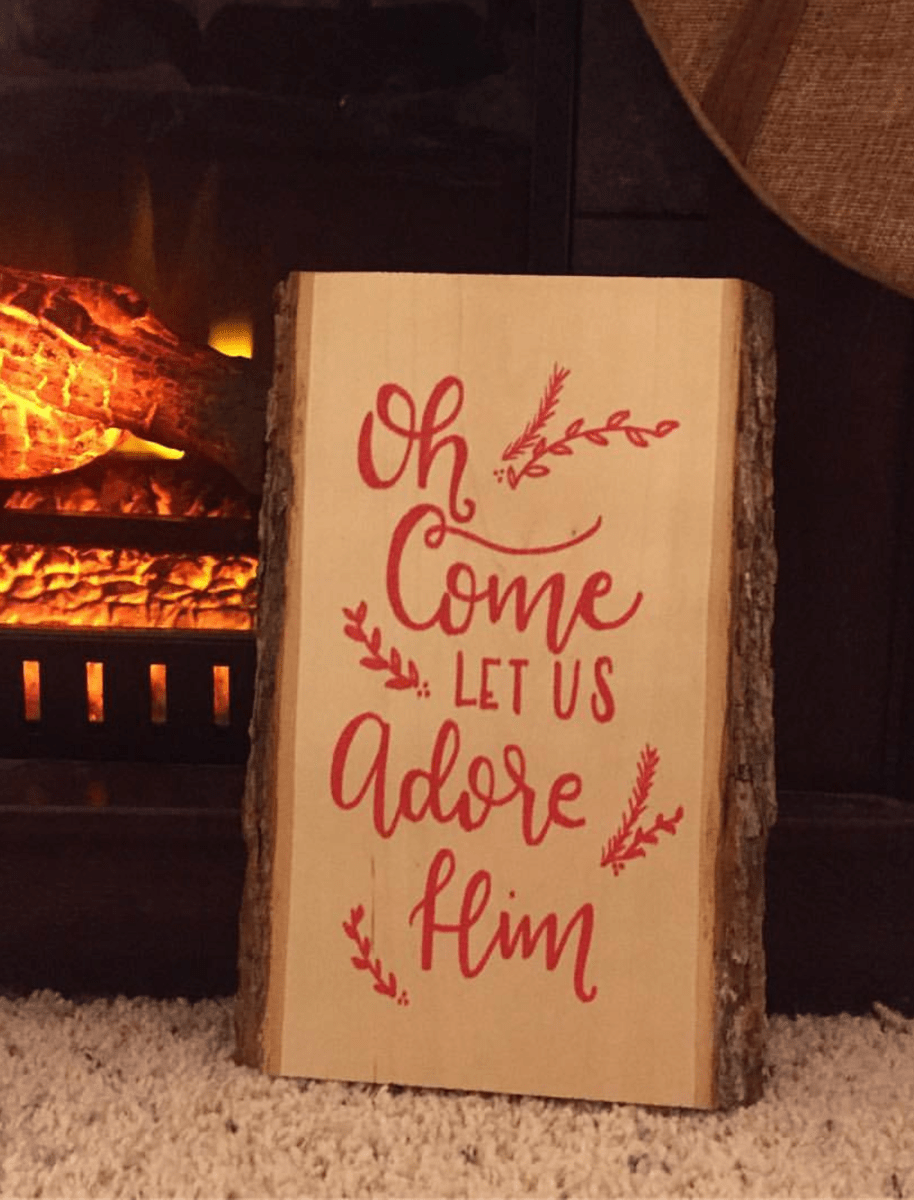 Oh
Come
LET US
Adore
Him